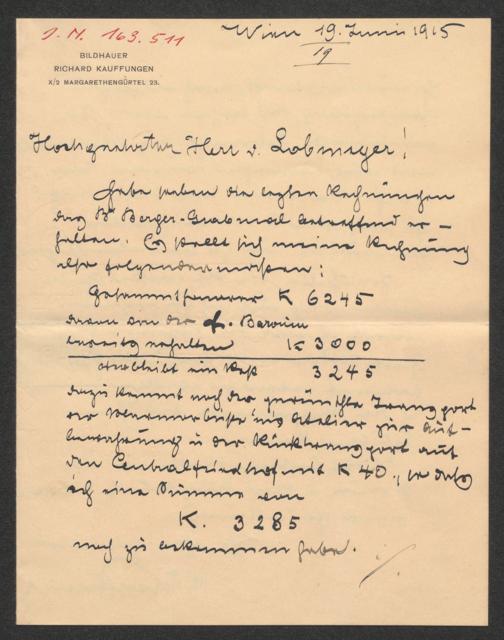 J. N. 163.511
Wien 19. Juni 1915
19
BILDHAUER
RICHARD KAUFFUNGEN
X/2 MARGARETHENGÜRTEL 23.
Hochgeehrter Herr v. Lobmeyer!
Habe soeben die letzten Rechnungen
das Bn Berger-Grabmal betreffend er-
halten. Es stellt sich meine Rechnung
also folgendermaßen:
K 6245
davon von der Fr. Baronin
bereits erhalten K 3000
verbleibt ein Rest 3245
dazu kommt noch der gewünschte Transport
der Marmorbüste ins Atelier zur Auf-
bewahrung u der Rücktransport auf
den Centralfriedhof mit K 40., so daß
ich eine Summe von
K. 3285
noch zu bekommen habe.